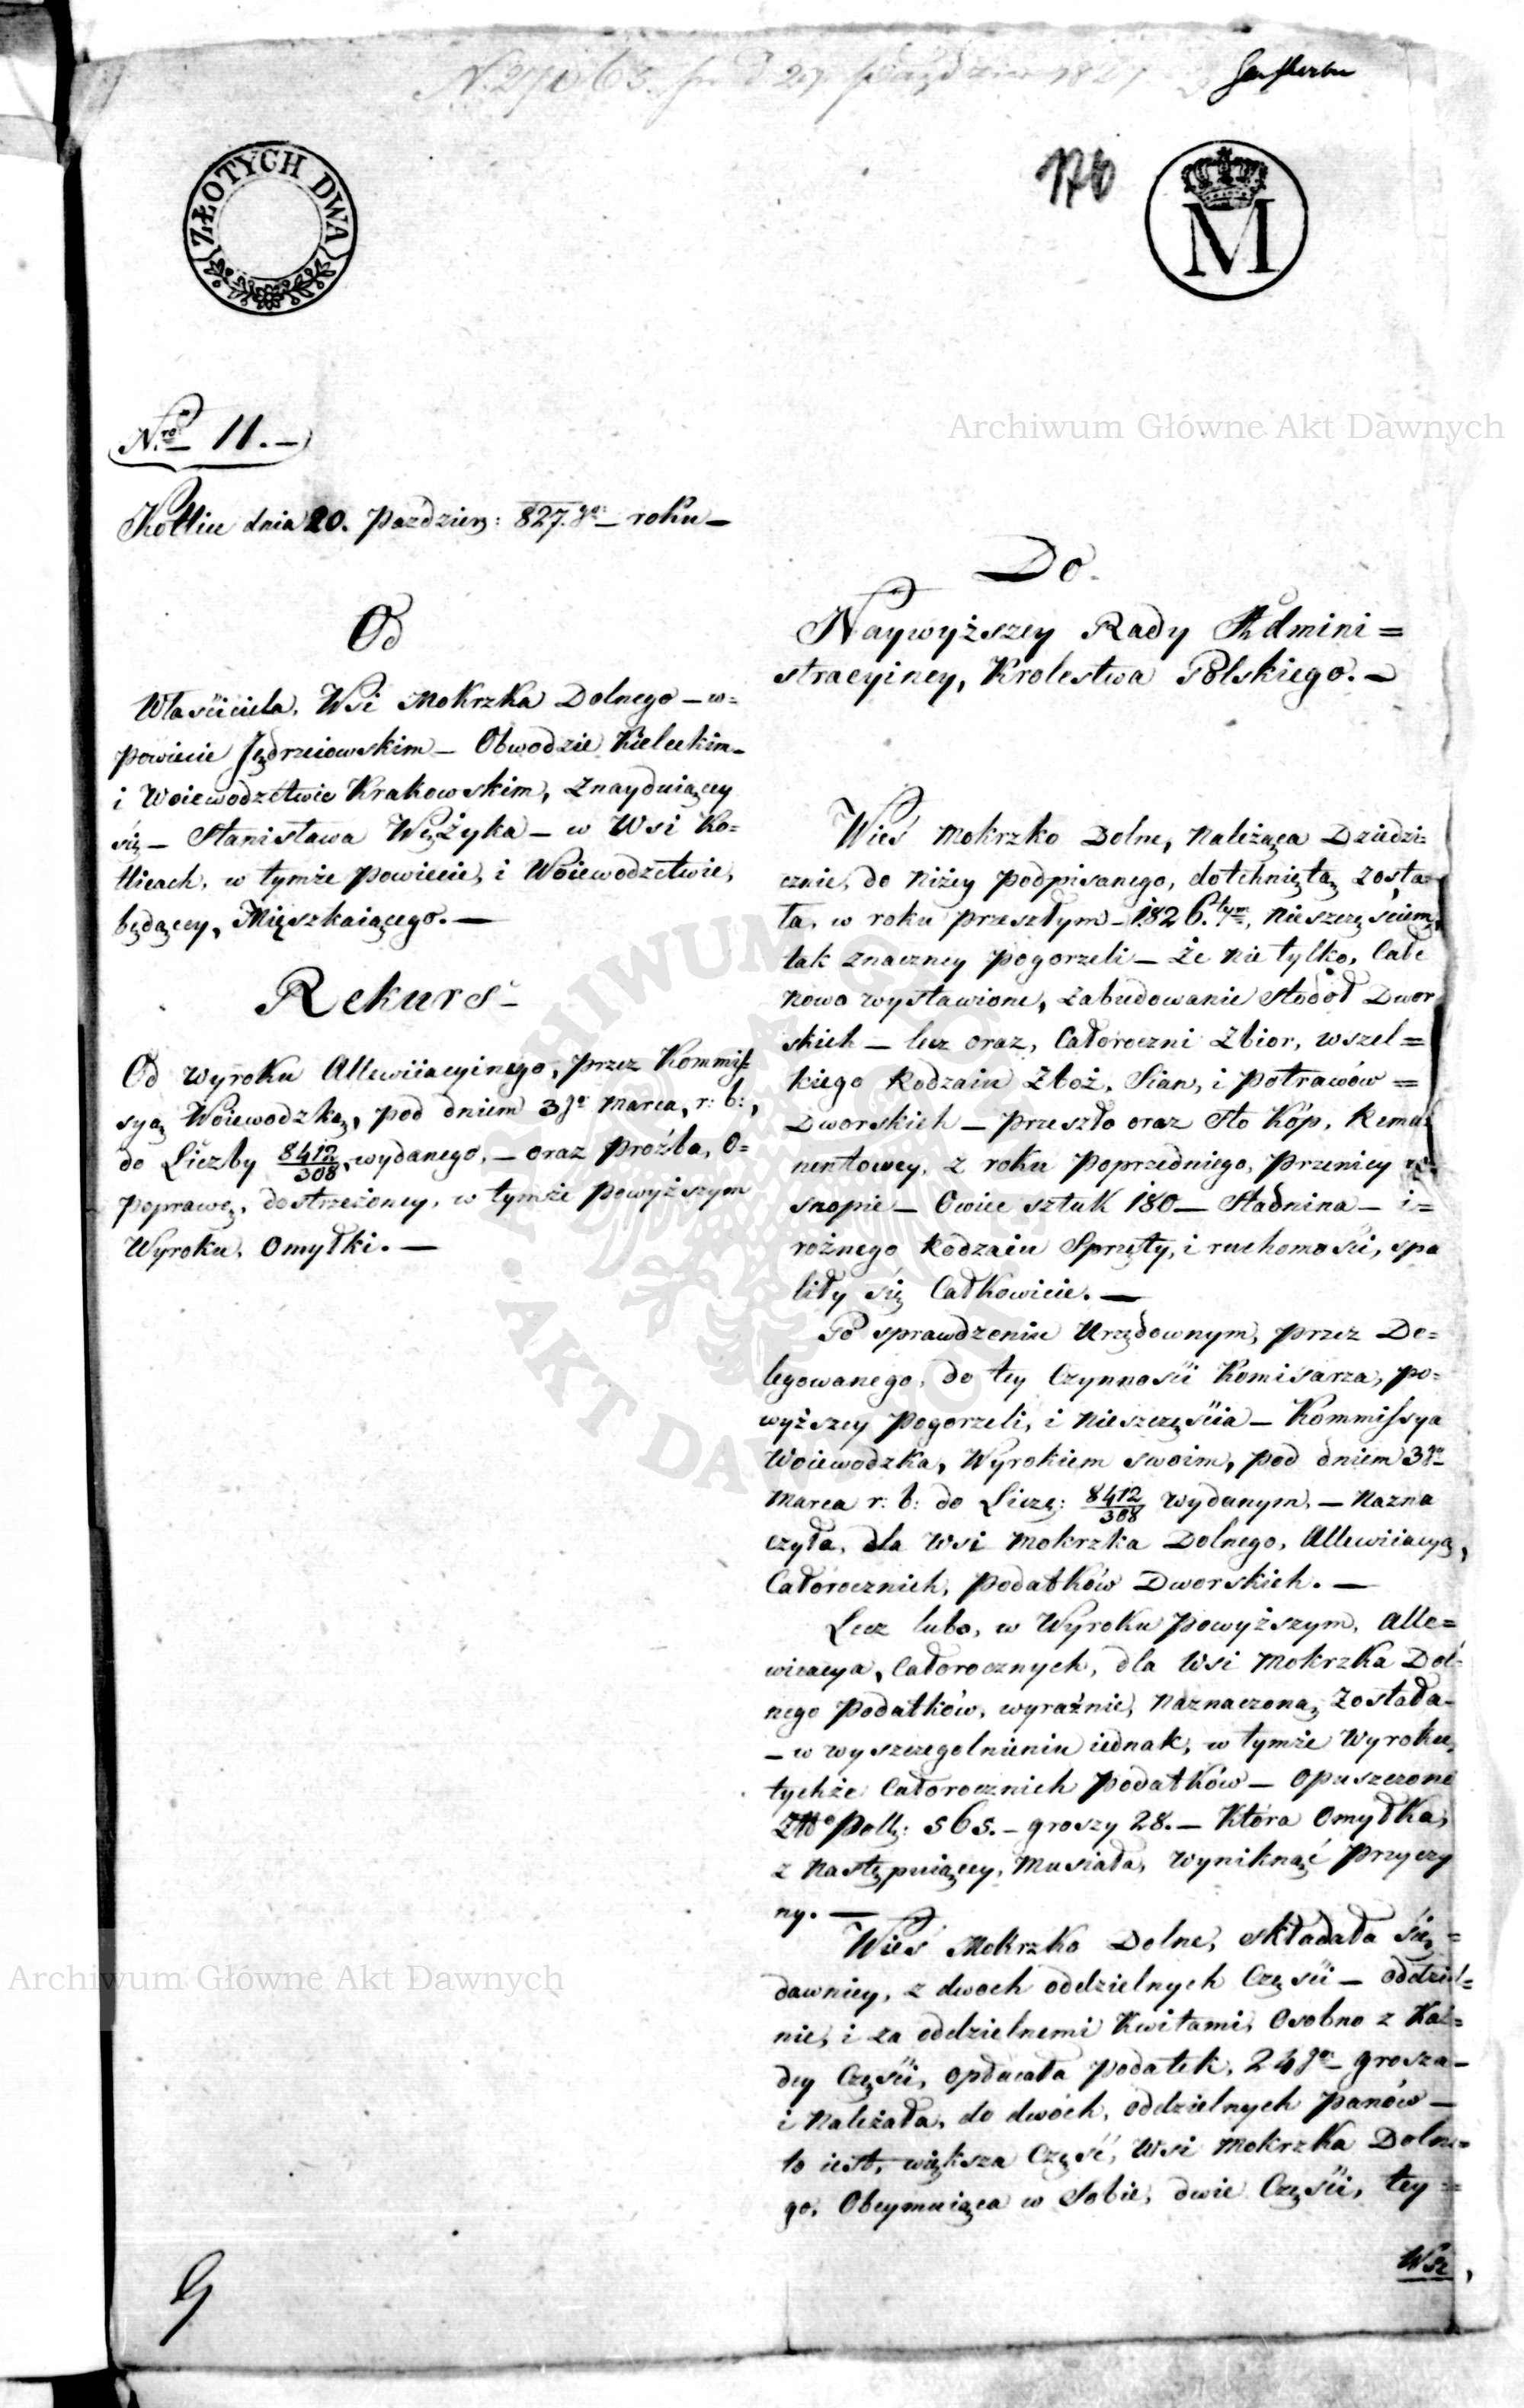 ZŁOTYCH DWA
176
M
Nro 11.—
Kotlice dnia 20. Pazdzier: 827.go roku—
Od
Własciciela, Wsi Mokrzka Dolnego — w=
powiecie Jędrzeiowskim — Obwodzie Kieleckim—
i Woiewodztwie Krakowskim, Znayduiącey
się — Stanisława Wężyka — w Wsi Ko=
tlicach, w tymże powiecie, i Woiewodztwie,
będącey, Mięszkaiącego.—
Rekurs—
Od Wyroku Allewiiacyinego, przez Kommis=
syą Woiewodzką, pod dniem 3go Marca, r: b:,
do Liczby 8412/308, wydanego, — oraz proźba, o=
poprawę, dostrzeżoney, w tymże powyższym
Wyroku, Omyłki.—
Do.
Naywyższey Rady Admini=
stracyiney, Krolestwa Polskiego.—
Wieś Mokrzko Dolne, Należąca Dziedzi=
cznie, do Niżey podpisanego, dotchniętą zosta=
ła, w roku przeszłym — 1826.tym, Nieszczęściem,
tak znaczney pogorzeli — Że Nie tylko, Całe
Nowo wystawione, Zabudowanie Stodoł Dwor
skich — lecz oraz, Całoroczni Zbior, wszel=
kiego Rodzaiu Zboż, Sian, i potrawów =
Dworskich — przeszło oraz Sto Kóp, Rema=
nentowey, z roku poprzedniego, pszenicy w
snopie — Owiec sztuk 180 — Stadnina — i=
rożnego Rodzaiu Sprzęty, i ruchomości, spa
liły się Całkowicie.—
Po sprawdzeniu Urzędownym, przez De=
legowanego, do tey Czynności Komisarza, po=
wyższey pogorzeli, i Nieszczęścia — Kommissya
Woiewodzka, Wyrokiem swoim, pod dniem 3go
Marca r: b: do Liczę: 8412/308 wydanym, — Nazna
czyła, dla Wsi Mokrzka Dolnego, Allewiiacyą,
Całorocznich, podatków Dworskich.—
Lecz lubo, w Wyroku powyższym, Alle=
wiacya, Całorocznych, dla Wsi Mokrzka Dol=
nego podatków, wyraźnie, Naznaczoną, Została—
— w wyszczegolnieniu iednak, w tymże Wyroku,
tychże Całorocznich podatków — Opuszczone
Polł: 565.— groszy 28.— Która Omyłka,
z Następuiącey, Musiała, wyniknąć przyczy
ny.—
Wieś Mokrzko Dolne, składała się =
dawniey, z dwoch oddzielnych Części — oddziel=
nie, i za oddzielnemi Kwitami, Osobno z Każ=
dey Części, opłacała podatek, 24go grosza—
i Należała, do dwóch, oddzielnych panów—
to iest, większa Część, Wsi Mokrzka Dolne=
go, Obeymuiąca w Sobie, dwie Części, tey =
Wsi,
Archiwum Główne Akt Dawnych
Archiwum Główne Akt Dawnych